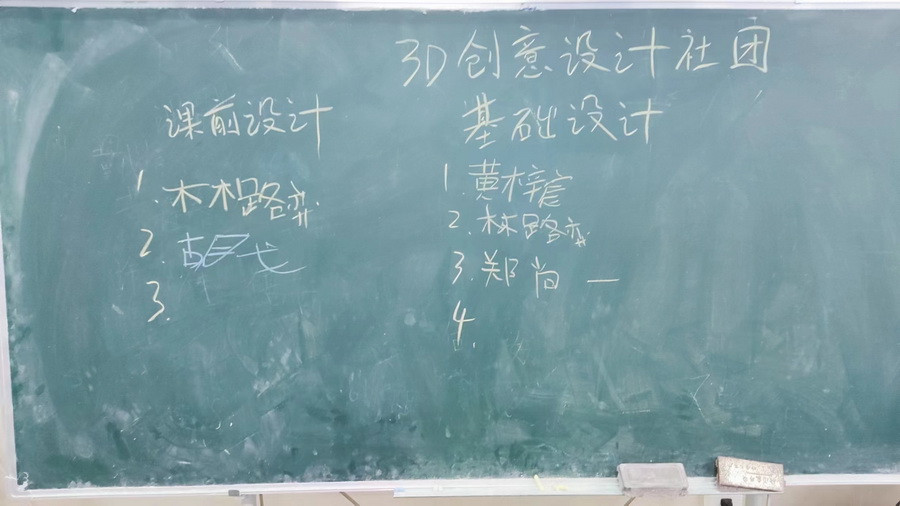 3D创意设计社团
课前设计
1. 林路弈
2. 胡弋
3.
基础设计
1. 黄梓萱
2. 林路弈
3. 郑尚一
4.